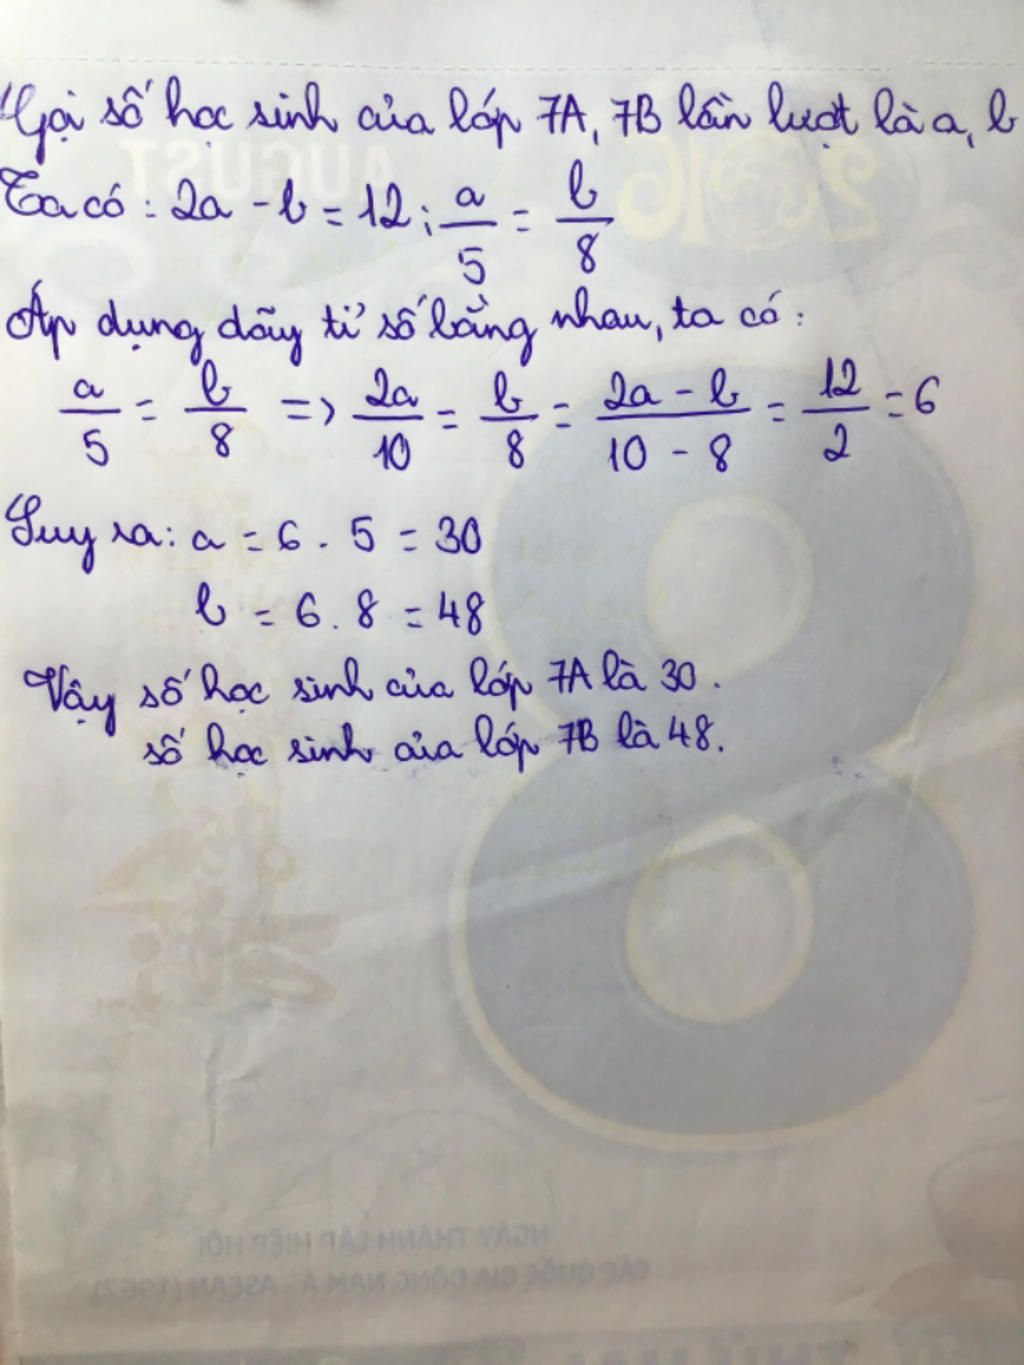 Gọi số học sinh của lớp 7A, 7B lần lượt là a, b
Ta có: 2a - b = 12; a/5 = b/8
Áp dụng dãy tỉ số bằng nhau, ta có:
a/5 = b/8 => 2a/10 = b/8 = (2a - b)/(10 - 8) = 12/2 = 6
Suy ra: a = 6 . 5 = 30
b = 6 . 8 = 48
Vậy số học sinh của lớp 7A là 30.
số học sinh của lớp 7B là 48.
AUGUST
2016
8
NGÀY THÀNH LẬP HIỆP HỘI
CÁC QUỐC GIA ĐÔNG NAM Á - ASEAN (1967)